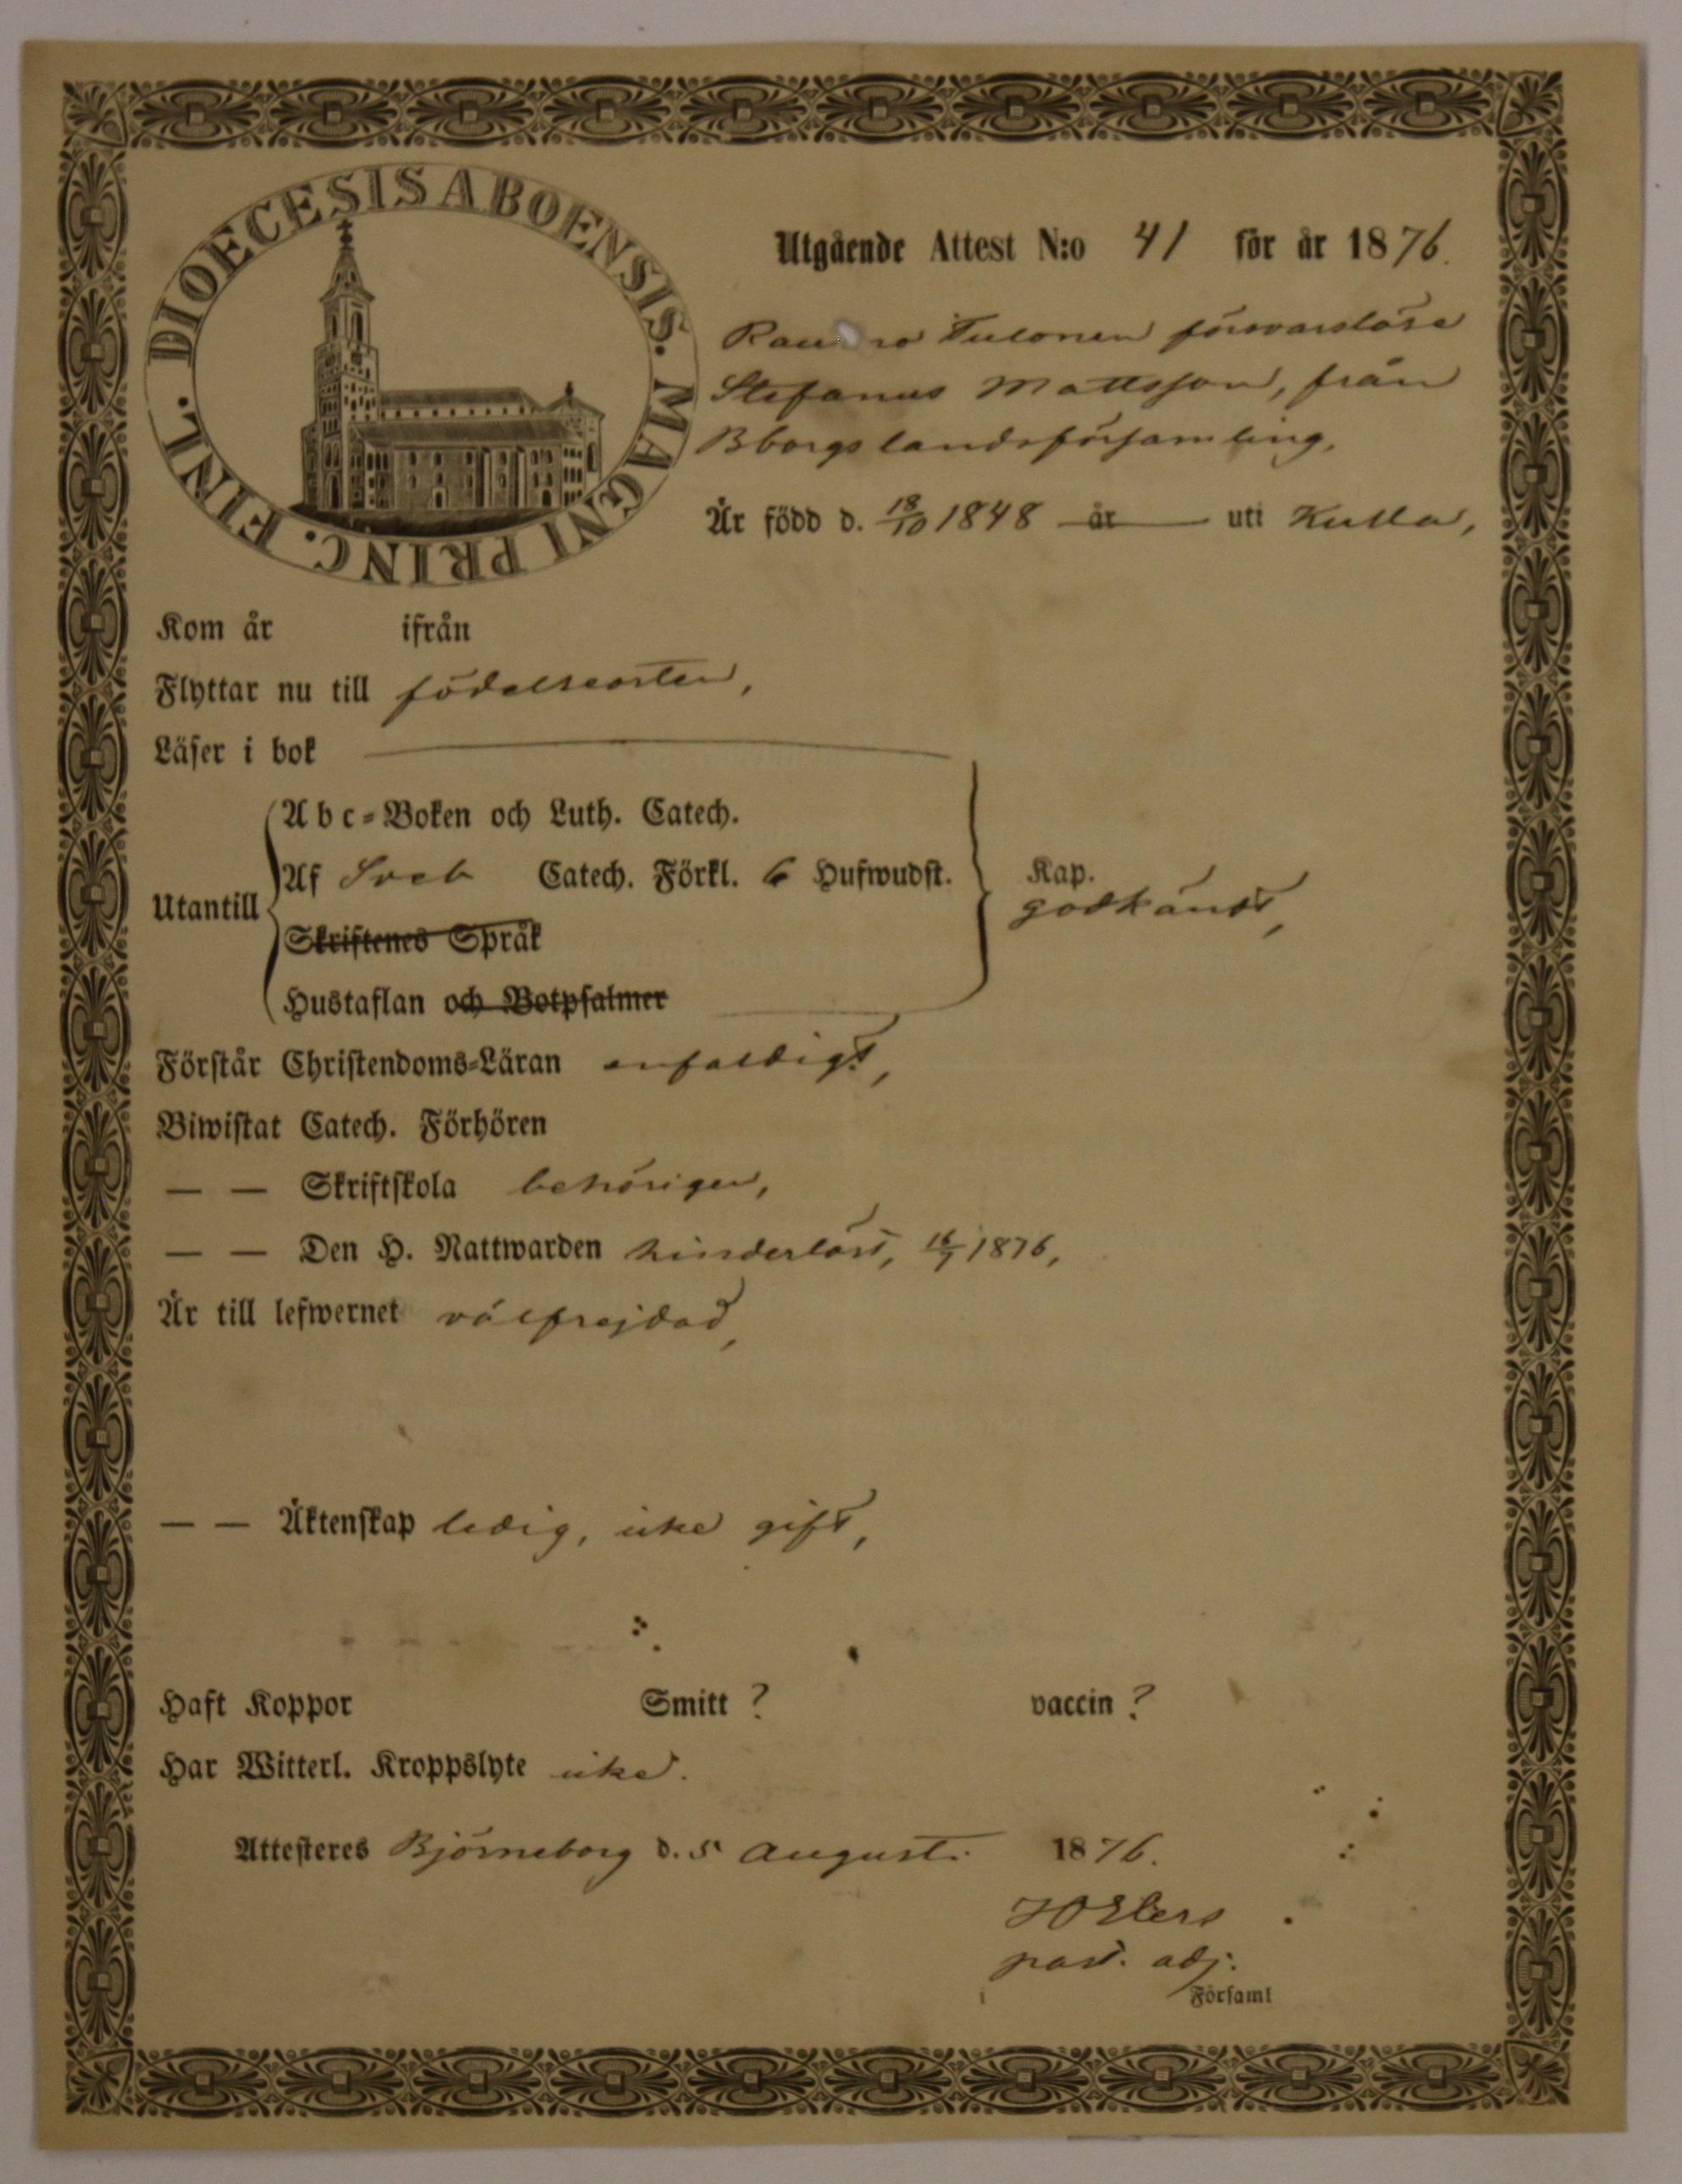 DIOECESIS ABOENSIS. MAGNI PRINC. FINL.
Utgående Attest N:o 41 för år 1876.
Tulonen försvarslöse
Stefanus Mattsson, från
Bborgs landsförsamling.
Är född d. 18/10 1848 år uti Kulla,
Kom år ifrån
Flyttar nu till födelseorten,
Läser i bok
Abc-Boken och Luth. Catech.
Utantill Af Sveb Catech. Förkl. 6 Hufwudst. Kap.
godkändt,
Skriftenes Språk
Hustaflan och Botpsalmer
Förstår Christendoms-Läran enfaldigt,
Biwistat Catech. Förhören
— — Skriftskola behörigen,
— — Den H. Nattwarden hinderlöst, 16/7 1876,
Är till lefwernet välfrejdad,
— — Äktenskap ledig, icke gift,
Haft Koppor Smitt ? vaccin ?
Har Witterl. Kroppslyte icke.
Attesteres Björneborg d. 5 Augusti 1876.
past. adj.
i Församl